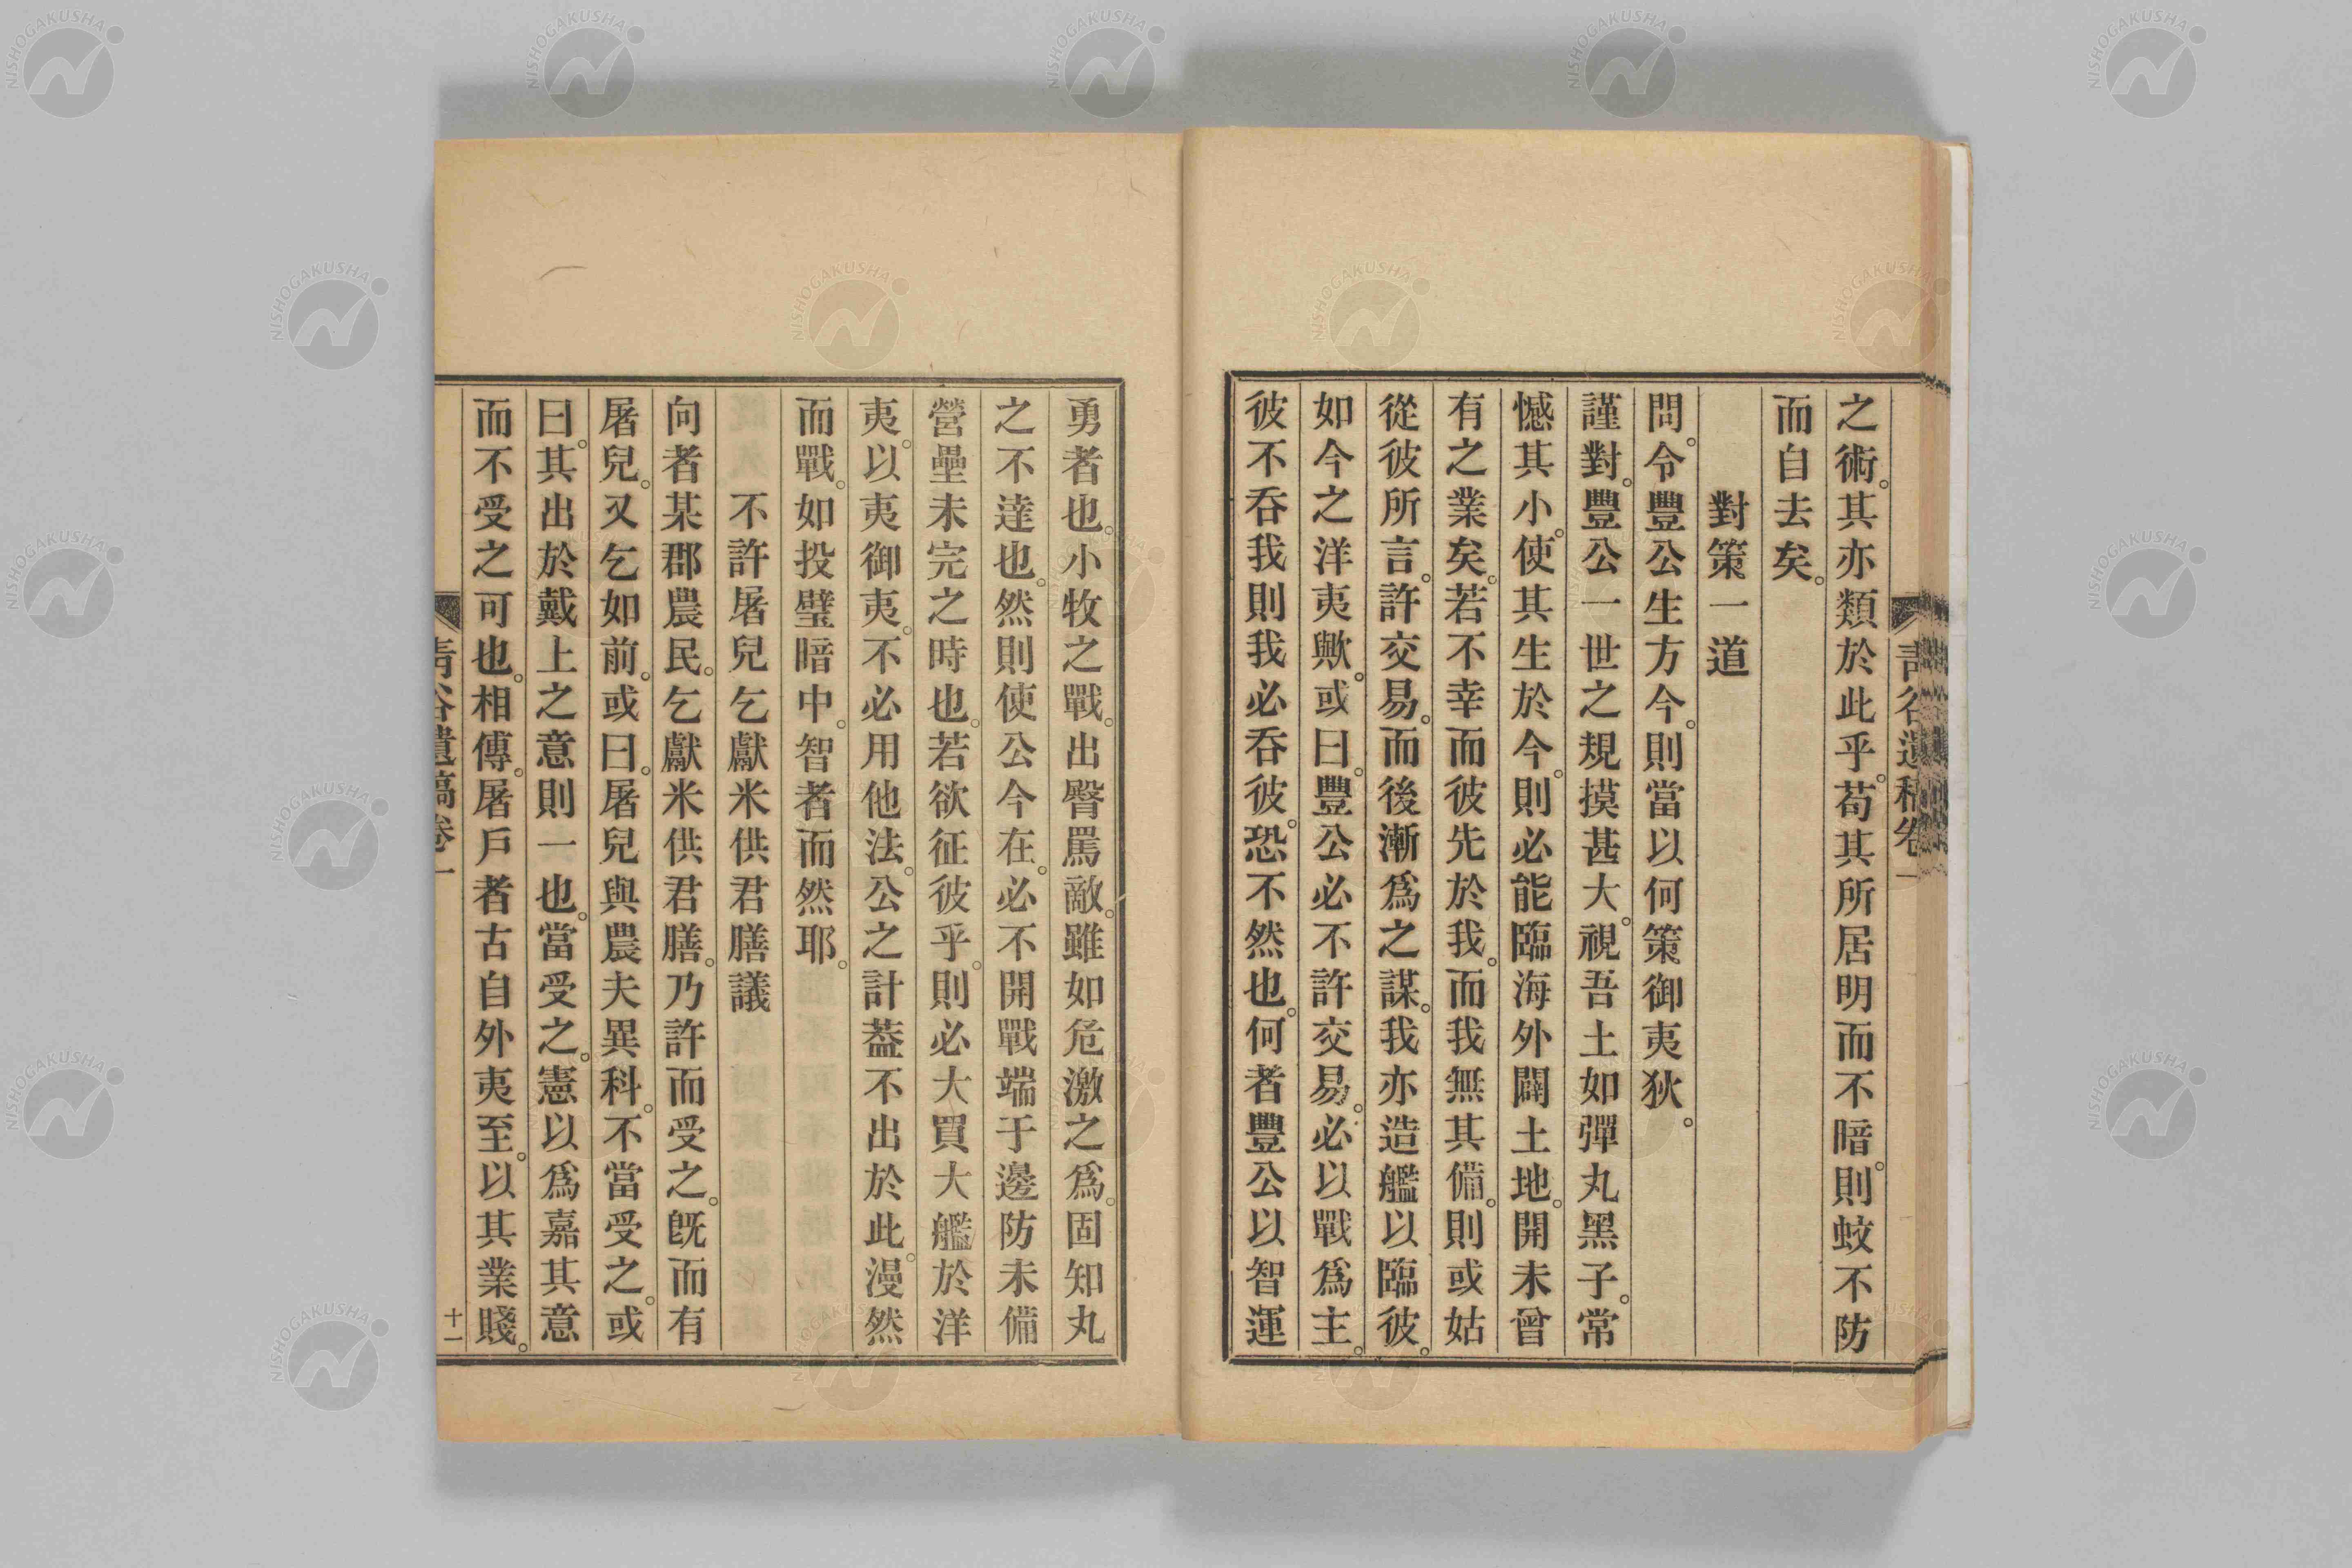 之術。其亦類於此乎。苟其所居明而不暗。則蚊不防
而自去矣。
對策一道
問。令豐公生方今。則當以何策御夷狄。
謹對。豐公一世之規摸甚大。視吾土如彈丸黑子。常
憾其小。使其生於今。則必能臨海外闢土地。開未曾
有之業矣。若不幸而彼先於我。而我無其備。則或姑
從彼所言。許交易。而後漸爲之謀。我亦造艦以臨彼。
如今之洋夷歟。或曰。豐公必不許交易。必以戰爲主。
彼不吞我則我必吞彼。恐不然也。何者豐公以智運
勇者也。小牧之戰。出臀罵敵。雖如危激之爲。固知丸
之不達也。然則使公今在。必不開戰端于邊防未備
營壘未完之時也。若欲征彼乎。則必大買大艦於洋
夷。以夷御夷。不必用他法。公之計蓋不出於此。漫然
而戰。如投璧暗中。智者而然耶。
不許屠兒乞獻米供君膳議
向者某郡農民。乞獻米供君膳。乃許而受之。既而有
屠兒。又乞如前。或曰。屠兒與農夫異科。不當受之。或
曰。其出於戴上之意則一也。當受之。憲以爲嘉其意
而不受之可也。相傳。屠戶者古自外夷至。以其業賤。
青谷遺稿卷一
十一
NISHOGAKUSHA